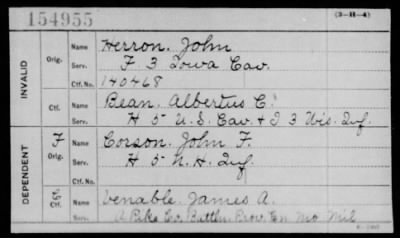 154955
(3-H-4)
INVALID
Orig.
Name Herron, John
Serv. F 3 Iowa Cav.
Ctf. No. 140468
Ctf.
Name Bean, Albertus C.
Serv. H 5 U.S. Cav. & I 3 Wis. Inf.
DEPENDENT
F
Orig.
Name Corson, John F.
Serv. H 5 N.H. Inf.
Ctf. No.
Ctf.
Name Venable, James A.
Serv. A Pike Co. Battln. Prov. En. Mo. Mil